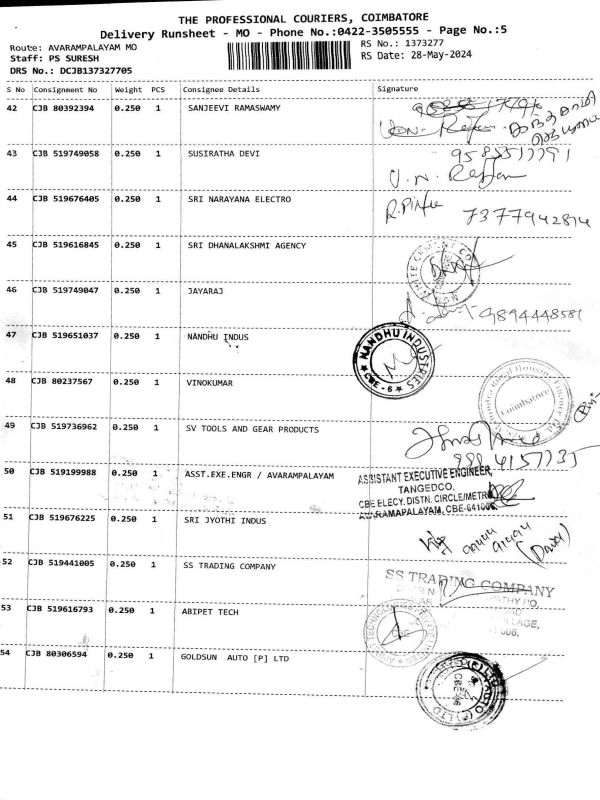 THE PROFESSIONAL COURIERS, COIMBATORE
Delivery Runsheet - MO - Phone No.:0422-3505555 - Page No.:5
Route: AVARAMPALAYAM MO
RS No.: 1373277
Staff: PS SURESH
RS Date: 28-May-2024
DRS No.: DCJB137327705
S No Consignment No Weight PCS Consignee Details Signature
42 CJB 80392394 0.250 1 SANJEEVI RAMASWAMY
43 CJB 519749058 0.250 1 SUSIRATHA DEVI
44 CJB 519676405 0.250 1 SRI NARAYANA ELECTRO
7377942814
45 CJB 519616845 0.250 1 SRI DHANALAKSHMI AGENCY
46 CJB 519749047 0.250 1 JAYARAJ
9894448581
47 CJB 519651037 0.250 1 NANDHU INDUS
NANDHU INDUSTRIES
CBE - 6
48 CJB 80237567 0.250 1 VINOKUMAR
Coimbatore
49 CJB 519736962 0.250 1 SV TOOLS AND GEAR PRODUCTS
50 CJB 519199988 0.250 1 ASST.EXE.ENGR / AVARAMPALAYAM
ASSISTANT EXECUTIVE ENGINEER,
TANGEDCO,
CBE ELECY.DISTN. CIRCLE/METRO
AVARAMAPALAYAM, CBE-641006
51 CJB 519676225 0.250 1 SRI JYOTHI INDUS
52 CJB 519441005 0.250 1 SS TRADING COMPANY
SS TRADING COMPANY
53 CJB 519616793 0.250 1 ABIPET TECH
CBE
54 CJB 80306594 0.250 1 GOLDSUN AUTO [P] LTD